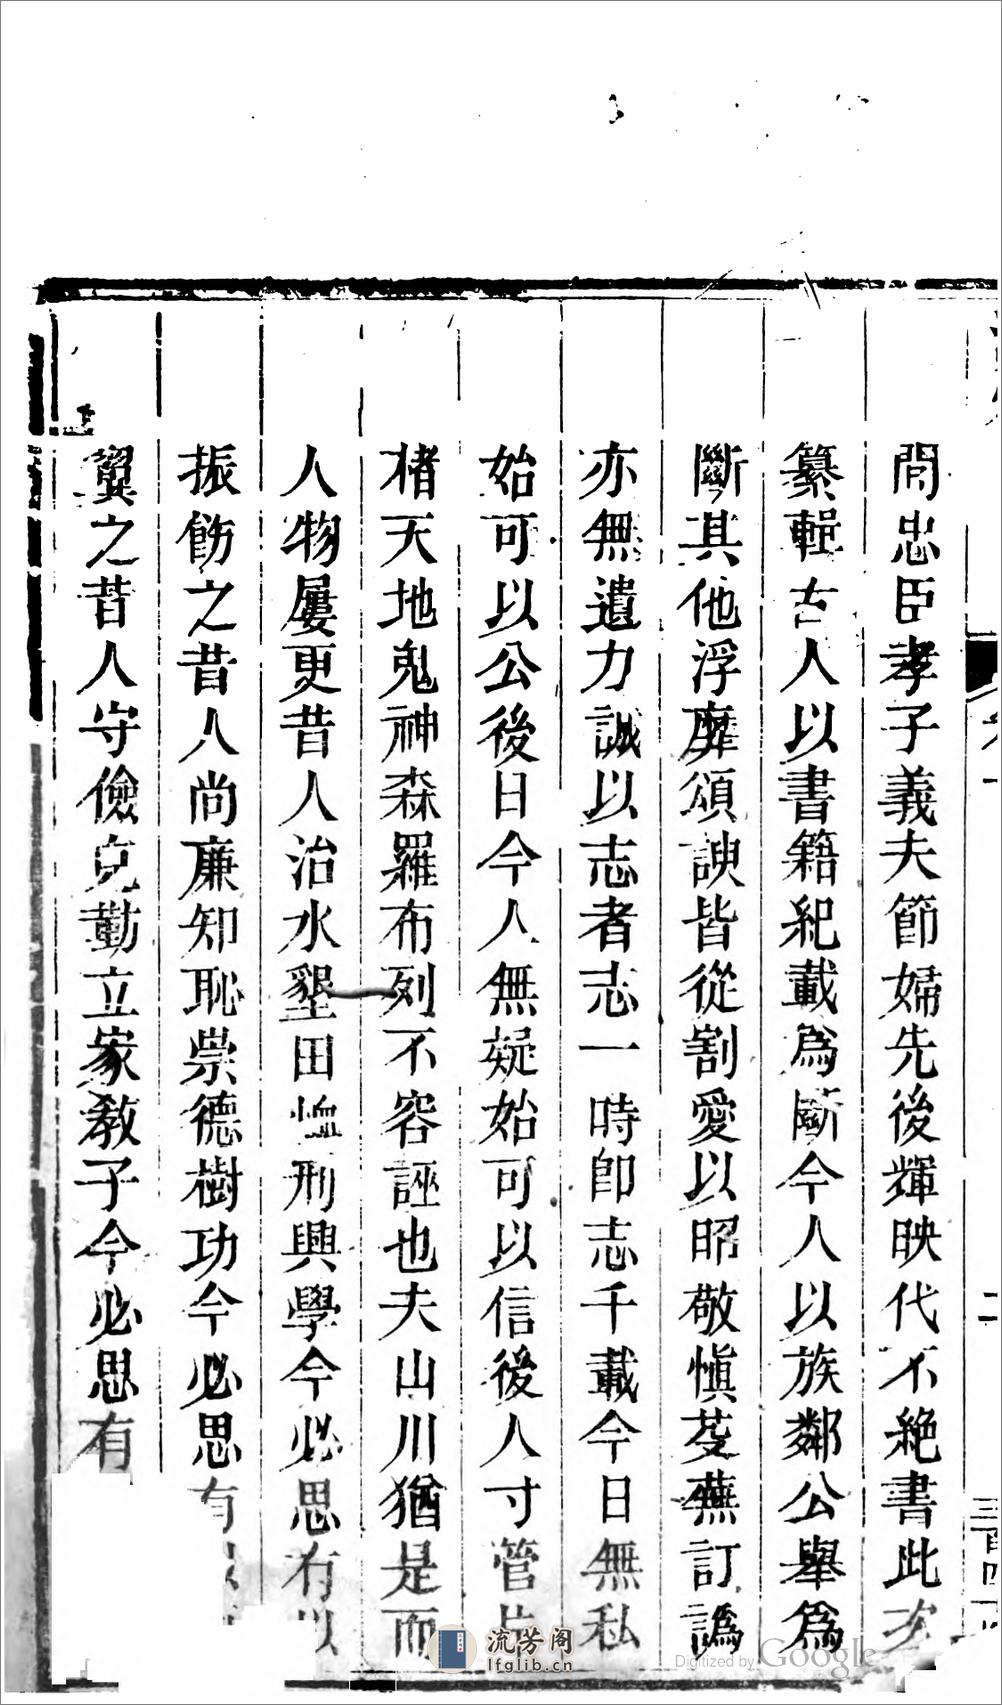 間忠臣孝子義夫節婦先後輝映代不絶書此次
纂輯古人以書籍紀載爲斷今人以族鄰公舉爲
斷其他浮靡頌諛皆從割愛以昭敬慎芟蕪訂譌
亦無遺力誠以志者志一時卽志千載今日無私
始可以公後日今人無疑始可以信後人寸管片
楮天地鬼神森羅布列不容誣也夫山川猶是而
人物屢更昔人治水墾田恤刑興學今必思有以
振飭之昔人尚廉知恥崇德樹功今必思有
翼之昔人守儉克勤立家教子今必思有
二
流芳阁
lfglib.cn
Digitized by Google